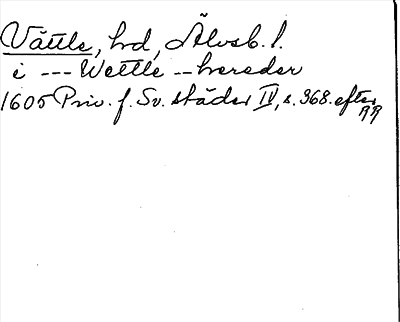 Vättle, hrd, Älvsb. l.
i --- Wettle -- hereder
1605 Priv. f. Sv. städer IV, s. 368. efter
RR